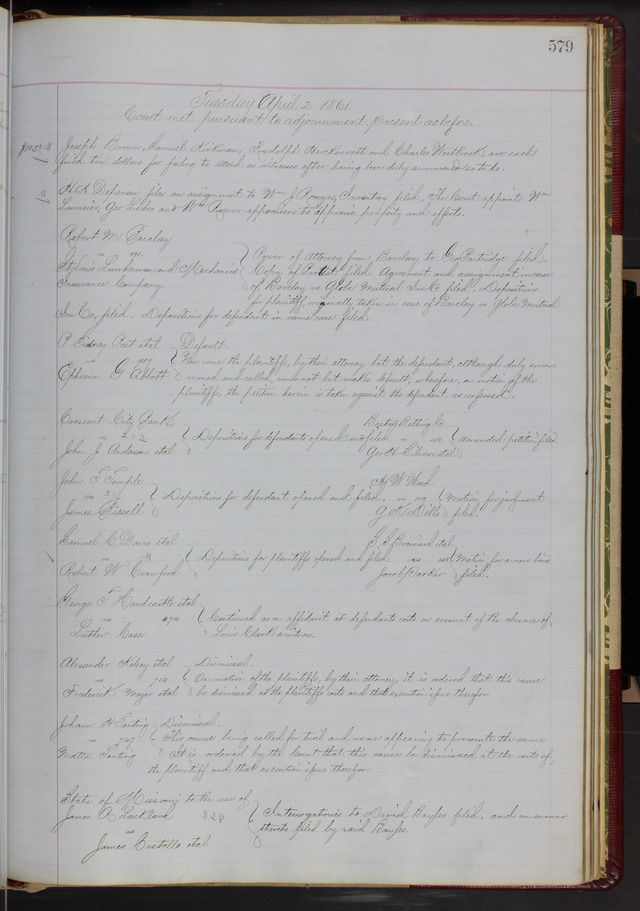 579
Tuesday April 2 1861.
Court met pursuant to adjournment, present as before.
Joseph Brown, Samuel Kirkman, Rudolph and Charles Westbrook, are each
fined ten dollars for failing to attend as witnesses after having been duly summoned so to do.
files an assignment to Wm J Romyn, Inventory filed, The Court appoints Wm
Geo and Wm appraisers to appraise property and effects.
Robert M Barclay
vs
St Louis Lumberman and Mechanics
Insurance Company.
Power of Attorney from Barclay to Geo Partridge filed.
Copy of Protest filed. Agreement and assignment in case
of Barclay vs Globe Mutual Ins Co filed. Depositions
for plaintiff originally taken in case of Barclay vs Globe Mutual
Ins Co, filed. Depositions for defendant in same case filed.
P Sidney Post et al
vs
Ephraim G Abbott
Default.
Now come the plaintiffs, by their attorney, but the defendant, although duly sum-
moned and called, comes not but makes default; wherefore, on motion of the
plaintiffs, the petition herein is taken against the defendant as confessed.
Crescent City Bank
vs 232
John J Anderson et al
Depositions for defendants opened and filed
Boston Belting Co
vs
Geo H Gilson et al
Amended petition filed.
John T Temple
vs
James Bissell
Depositions for defendant opened and filed.
H W Weed
vs
G Dillo
Motion for judgment
filed.
Samuel C Davis et al
vs 11
Robert W Crawford
Depositions for plaintiffs opened and filed.
et al
vs
Jacob Barker
Motion for a new bond
filed.
George T Hardcastle et al
vs 474
Luther Case
Continued on affidavit at defendants costs on account of the absence of
Louis Clark a witness.
Alexander Kelsey et al
vs 754
Frederick Meyer et al
Dismissal.
On motion of the plaintiffs, by their attorney, it is ordered that this cause
be dismissed at the plaintiffs costs and that execution issue therefor
Johann H Tenting
vs 797
Matta Tenting
Dismissal.
This cause being called for trial and none appearing to prosecute the same
It is ordered by the Court that this cause be dismissed at the costs of
the plaintiff and that execution issue therefor.
State of Missouri to the use of
James R Lackland 328
vs
James Castello et al
Interrogatories to David Bayles filed. and answer
thereto filed by said Bayles.